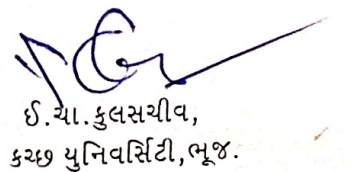 ઈ.ચા.કુલસચીવ,
કચ્છ યુનિવર્સિટી,ભૂજ.